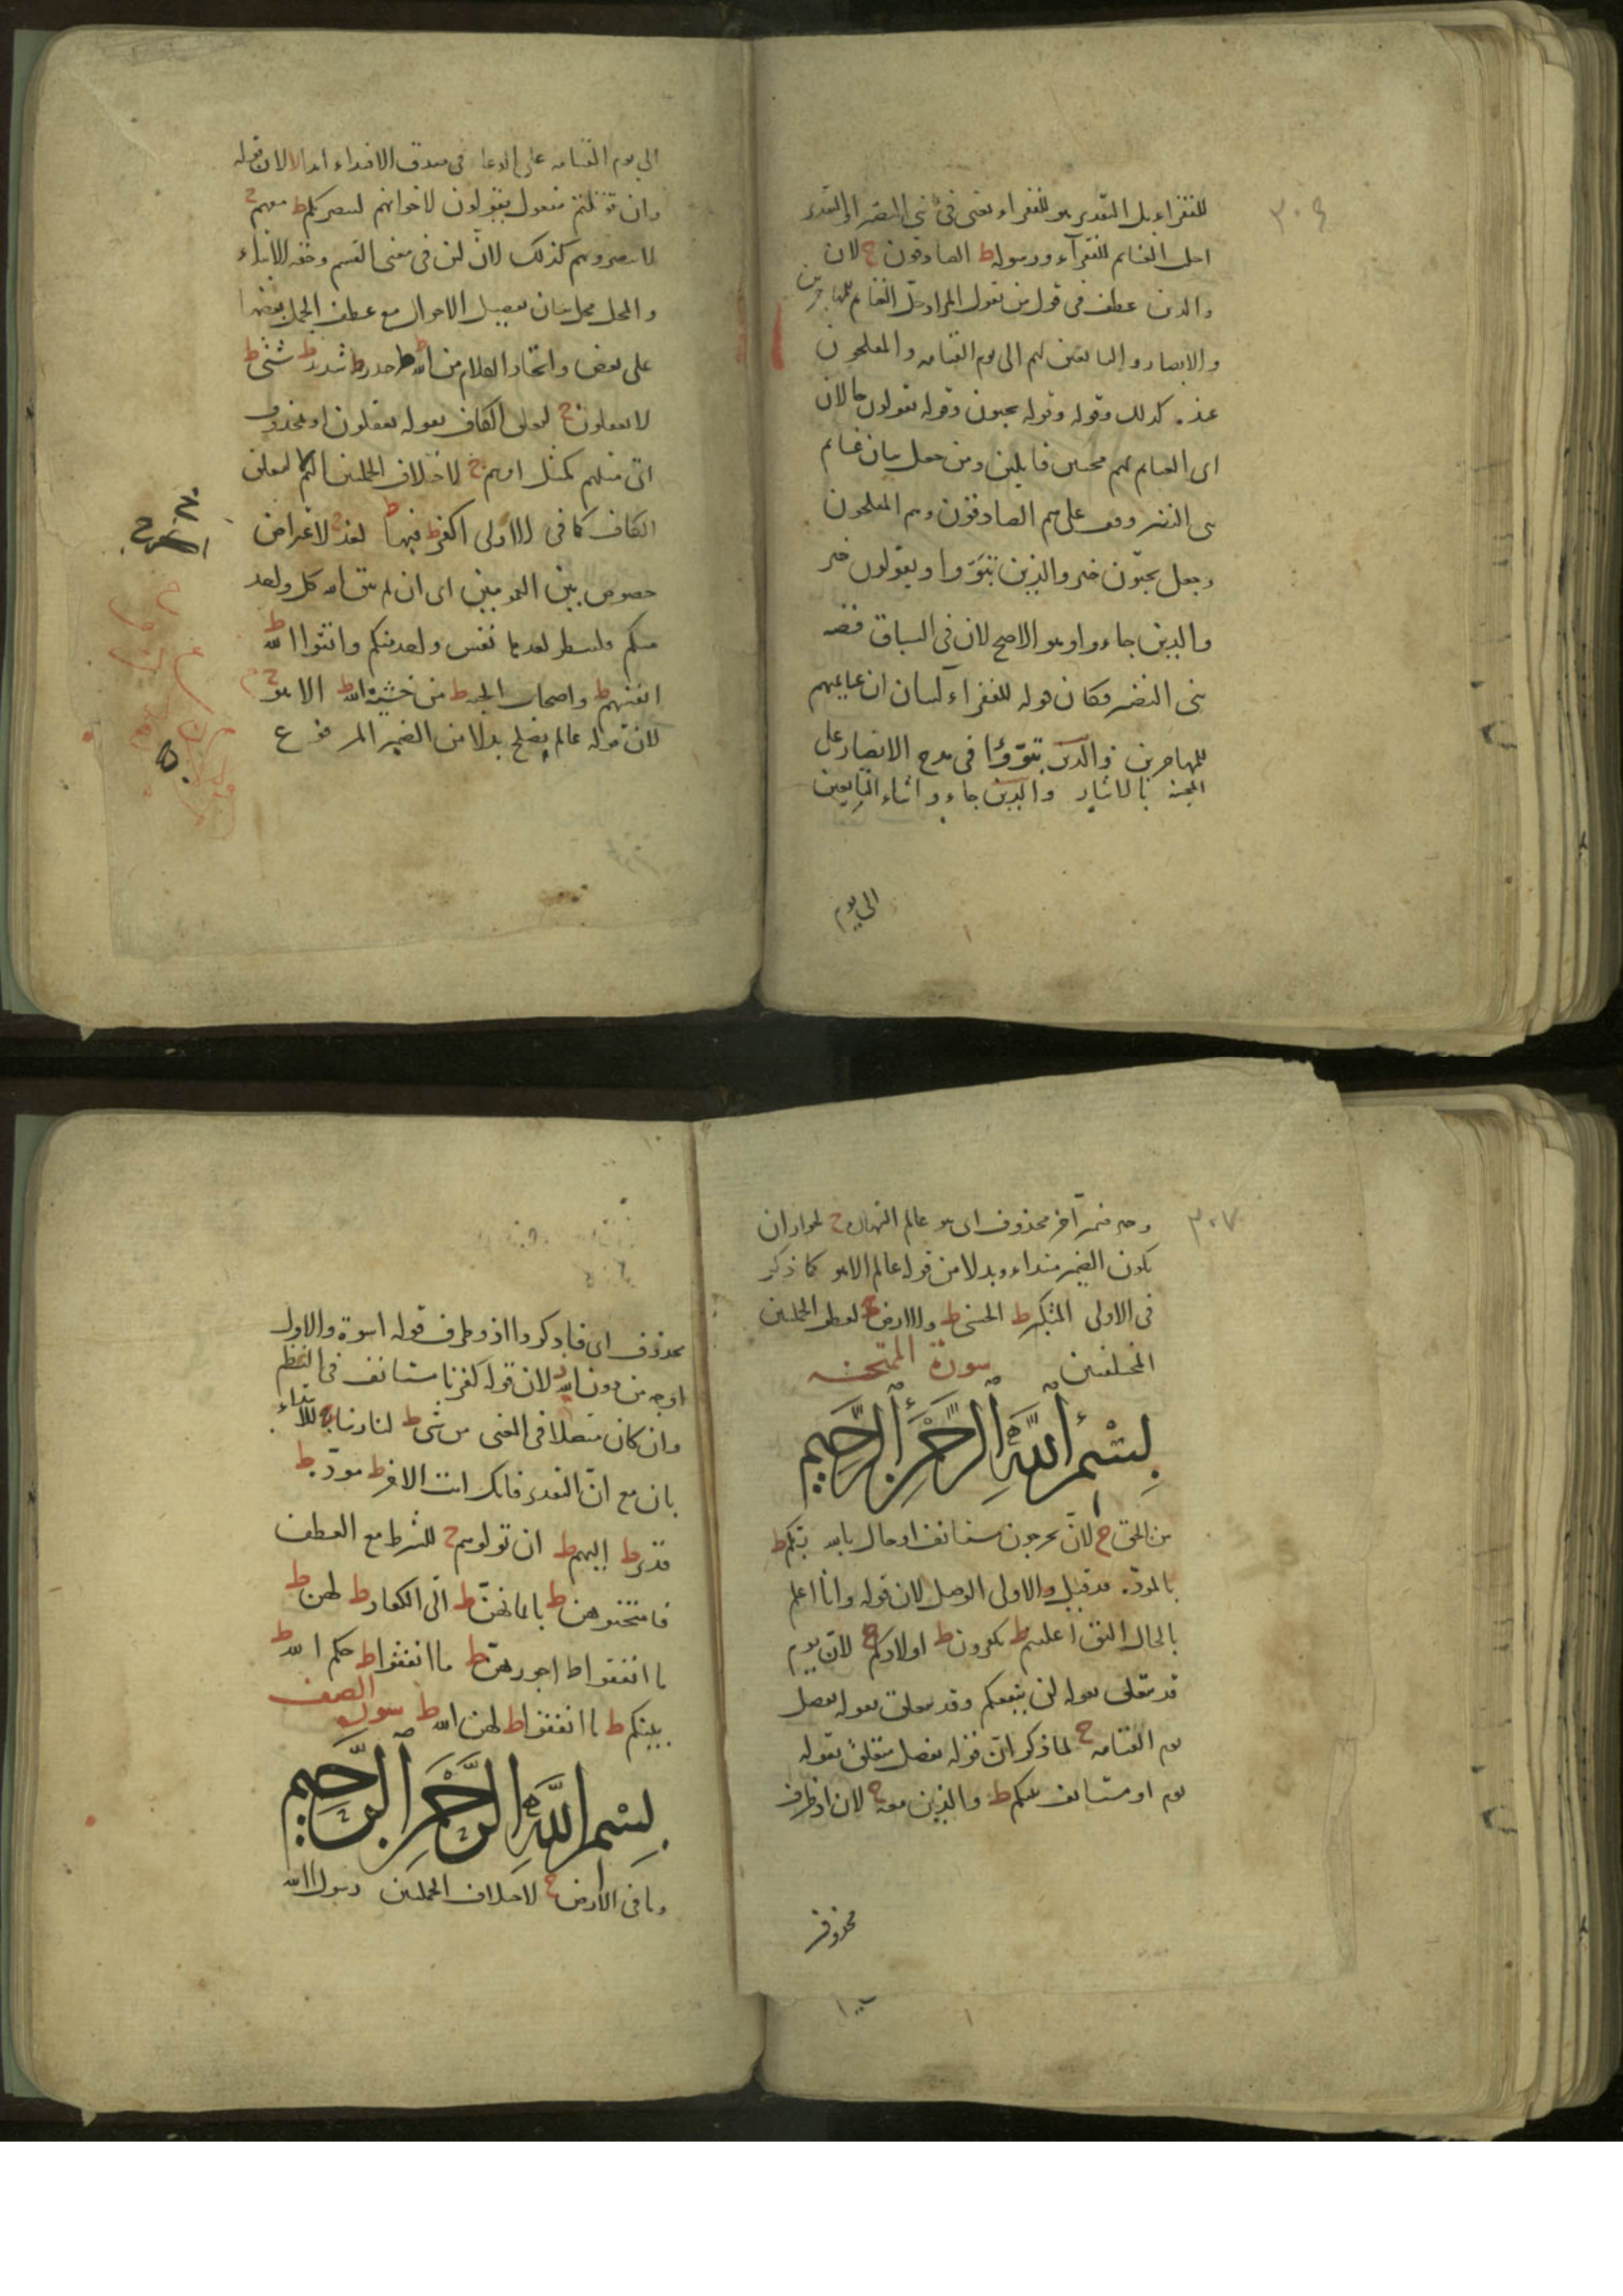 ٣٠٦
للفقراء بل التقدير هو للفقراء يعنى فئ بنى النضير او التقدير
احل الغنايم للفقرآء ورسوله ط الصادقون ج لان
والذين عطف فى قول من يقول المراد حل الغنايم للمهاجرين
والانصار والتابعين لهم الى يوم القيامه والمفلحون
كذلك وقوله وقوله يحبون وقوله يقولون حالان
اى الغنايم لهم محبين قايلين ومن جعل بيان غنايم
بنى النضير وقف على هم الصادقون وهم المفلحون
وجعل يحبّون خبر والذين تبوّوا ويقولون خبر
والذين جاءو وهو الاصح لان فى السياق قصه
بنى النضير فكان قوله للفقراء لبيان ان غنايمهم
للمهاجرين والذين تبوّؤا فى مدح الانصار على
المحبة بالايثار والذين جاءو اثناء التابعين
الى يوم
الى يوم القيامه على الدعاء فى صدق الاقتداء ابدا لا لان قوله
وان قوتلتم مفعول يقولون لاخوانهم لننصرنكم ط معهم ج
لا ينصرونهم كذلك لانّ لئن فى معنى القسم وحقه الابتداء
والمحل محل بيان تفصيل الاحوال مع عطف الجمل بعضها
على بعض واتحاد الكلام من الله ط جدر ط شديد ط شتى ط
لا يعقلون ج لتعلق الكاف بقوله يعقلون او بمحذوف
اى مثلهم كمثل امرهم ج لاختلاف الجملتين اليم لا لتعلق
الكاف كما فى الاولى اكفر ط فيها ط لغد ج لاعتراض
خصوص بين العمومين اى ان لم يتق الله كل واحد
منكم ولتنظر لغد ما نفس واحد منكم واتقوا الله ط
انفسهم ط واصحاب الجنه ط من خشية الله ط الا هو ج
لان قوله عالم يصلح بدلا من الضمير المرفوع
٣٠٧
وخبر ضمير آخر محذوف اى هو عالم الشهادة ج لجواز ان
يكون الضمير مبتداء وبدلا من قوله عالم الا هو كما ذكر
فى الاولى المتكبر ط الحسنى ط والارض ج لعطف الجملتين
المختلفتين سورة الممتحنه
بسم الله الرحمن الرحيم
من الحق ج لانّ يخرجون مستانف او حال بالله ربكم ط
بالمودة قد قيل والاولى الوصل لان قوله وانا اعلم
بالحال اليق اعلنتم ط تكفرون ط اولادكم ج لانّ يوم
قد يتعلق بقوله لن ينفعكم وقد يتعلق بقوله يفصل
يوم القيامه ج لما ذكر انّ قوله يفصل متعلق بقوله
يوم او مستانف بينكم ط والذين معه ج لان اذ ظرف
محذوف
محذوف اى فاذكروا اذ وظرف قوله اسوة والاول
اوجه من دون الله ز لان قوله كفرنا مستانف فى النظم
وان كان متصلا فى المعنى من شىء ط لنا ربنا ج للابتداء
بان مع انّ التقدير فانك انت الاخر ط مودّة ط
قدير ط اليهم ط ان تولوهم ج للشرط مع العطف
فامتحنوهن ط بايمانهنّ ط الى الكفار ط لهن ط
ما انفقوا ط اجورهنّ ط ما انفقوا ط حكم الله ط
بينكم ط ما انفقوا ط لهن الله ط سورة الصف
بسم الله الرحمن الرحيم
وما فى الارض ج لاختلاف الجملتين رسول الله